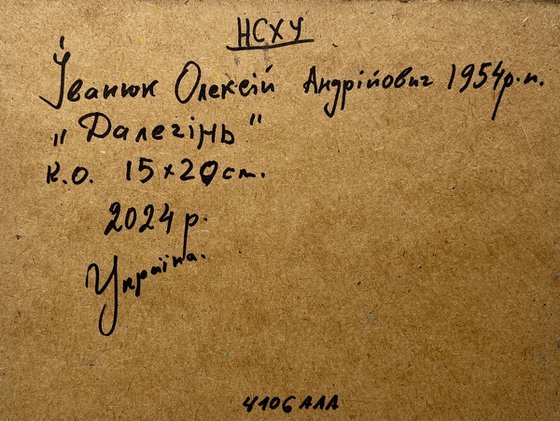 НСХУ
Іванюк Олексій Андрійович 1954р.н.
„Далечінь"
к.о. 15х20см.
2024р.
Україна.
4106АЛА